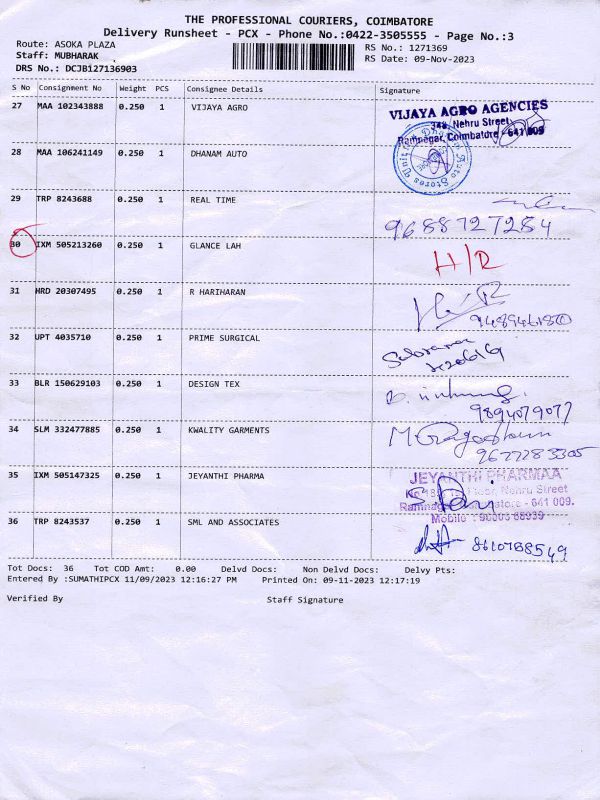 THE PROFESSIONAL COURIERS, COIMBATORE
Delivery Runsheet - PCX - Phone No.:0422-3505555 - Page No.:3
Route: ASOKA PLAZA
Staff: MUBHARAK
DRS No.: DCJB127136903
RS No.: 1271369
RS Date: 09-Nov-2023
S No Consignment No Weight PCS Consignee Details Signature
27 MAA 102343888 0.250 1 VIJAYA AGRO
VIJAYA AGRO AGENCIES
Nehru Street,
Ramnagar, Coimbatore - 641 009
28 MAA 106241149 0.250 1 DHANAM AUTO
29 TRP 8243688 0.250 1 REAL TIME
9688727284
30 IXM 505213260 0.250 1 GLANCE LAH
H/R
31 HRD 20307495 0.250 1 R HARIHARAN
32 UPT 4035710 0.250 1 PRIME SURGICAL
33 BLR 150629103 0.250 1 DESIGN TEX
9894079077
34 SLM 332477885 0.250 1 KWALITY GARMENTS
9677283305
35 IXM 505147325 0.250 1 JEYANTHI PHARMA
JEYANTHI PHARMAA
Nehru Street
Ramnagar, Coimbatore - 641 009.
Mobile :
36 TRP 8243537 0.250 1 SML AND ASSOCIATES
8610788549
Tot Docs: 36 Tot COD Amt: 0.00 Delvd Docs: Non Delvd Docs: Delvy Pts:
Entered By :SUMATHIPCX 11/09/2023 12:16:27 PM Printed On: 09-11-2023 12:17:19
Verified By Staff Signature